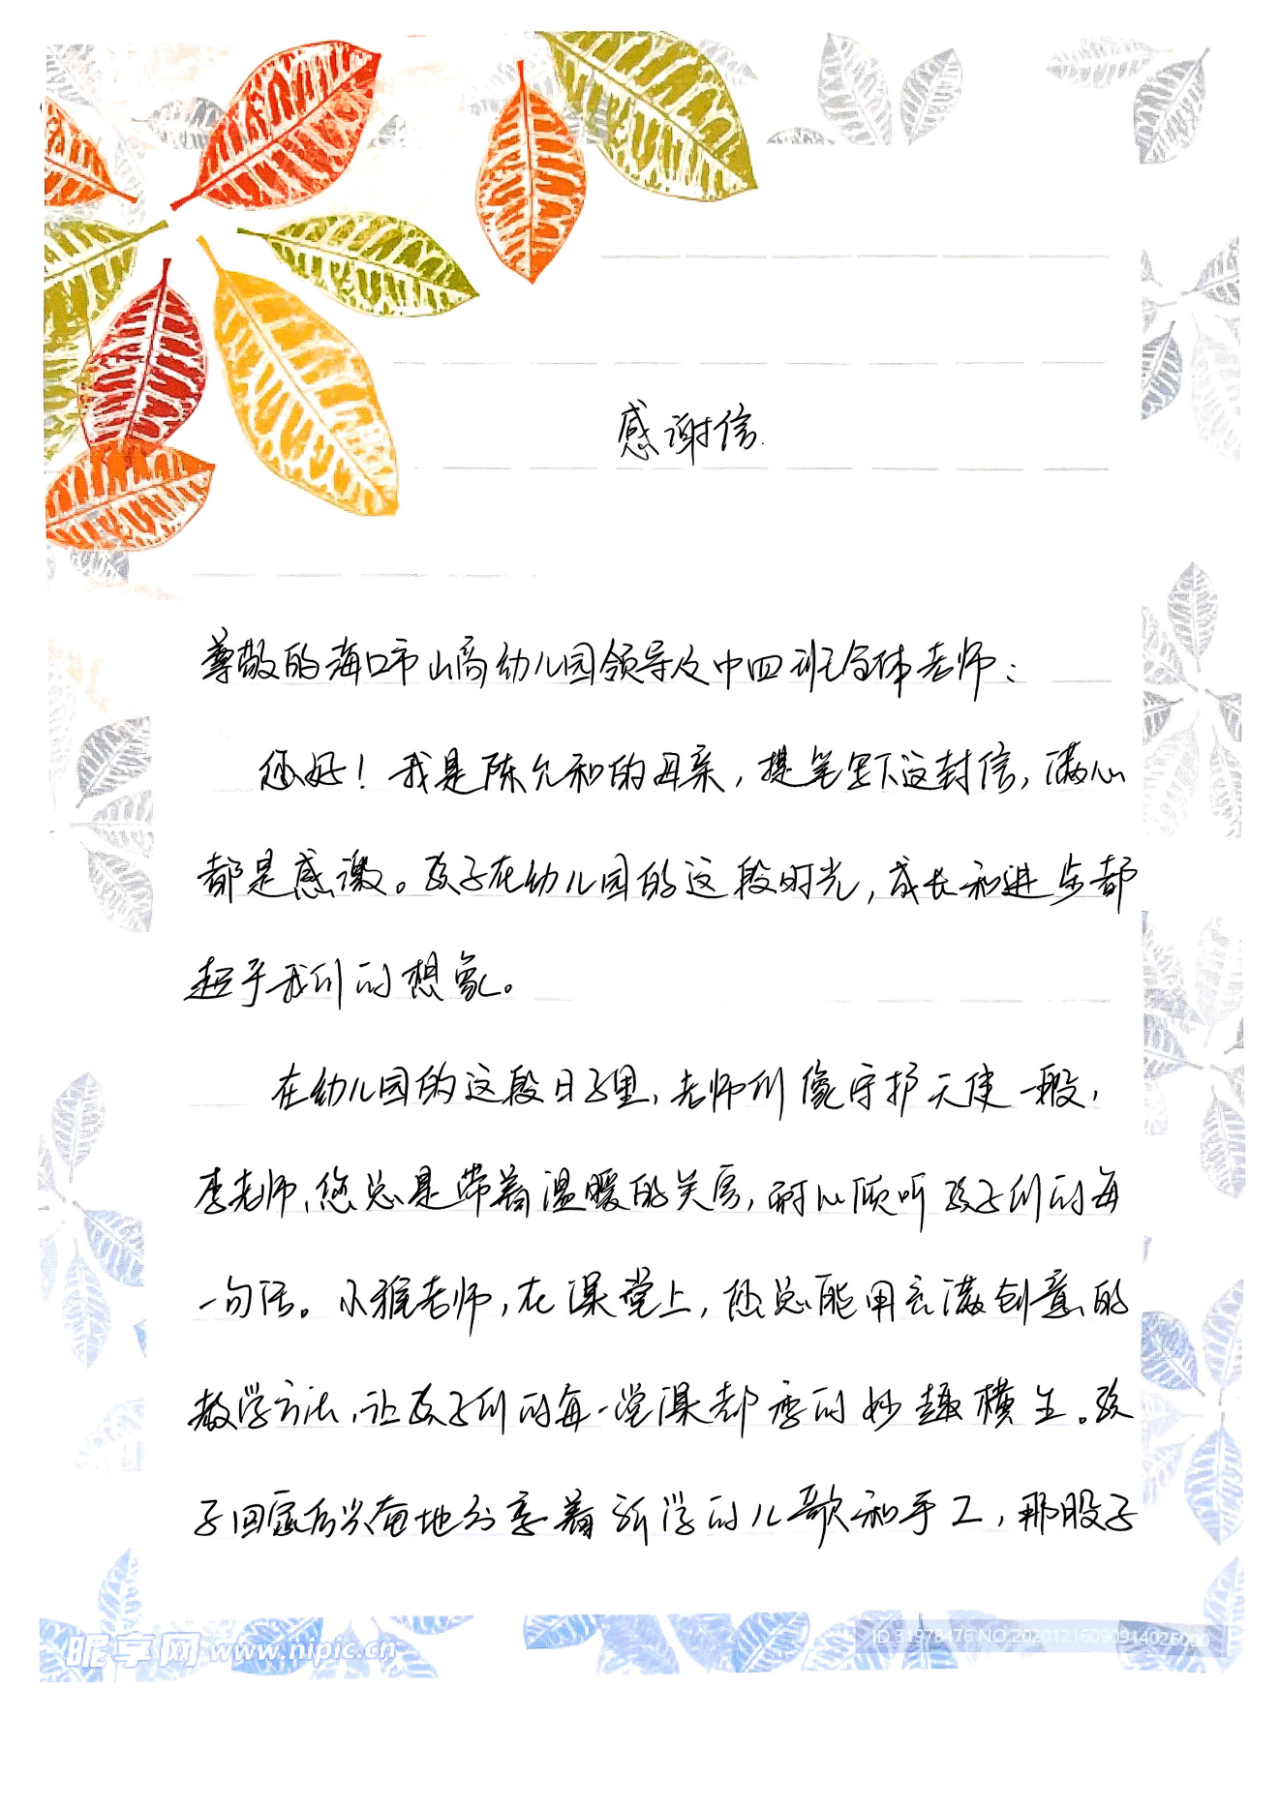 感谢信.
尊敬的海口市山高幼儿园领导及中四班全体老师：
您好！我是陈允和的母亲，提笔写下这封信，满心
都是感激。孩子在幼儿园的这段时光，成长和进步都
超乎我们的想象。
在幼儿园的这段日子里，老师们像守护天使一般，
李老师，您总是带着温暖的关怀，耐心倾听孩子们的每
一句话。小雅老师，在课堂上，您总能用充满创意的
教学方法，让孩子们的每一堂课都变的妙趣横生。孩
子回家后兴奋地分享着所学的儿歌和手工，那股子
昵享网 www.nipic.cn
ID:31978476 NO:20201216090914026000